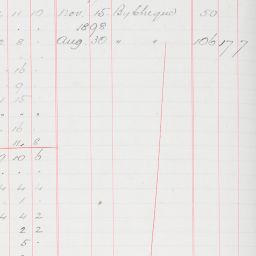 11 10 Nov. 15 By Cheque 50
1898
8 . Aug. 30 " " 106 17 7
16
9
15
" "
16
11 8
9 10 6
4 4 4
. 1 .
4 4 2
2 2
5 .